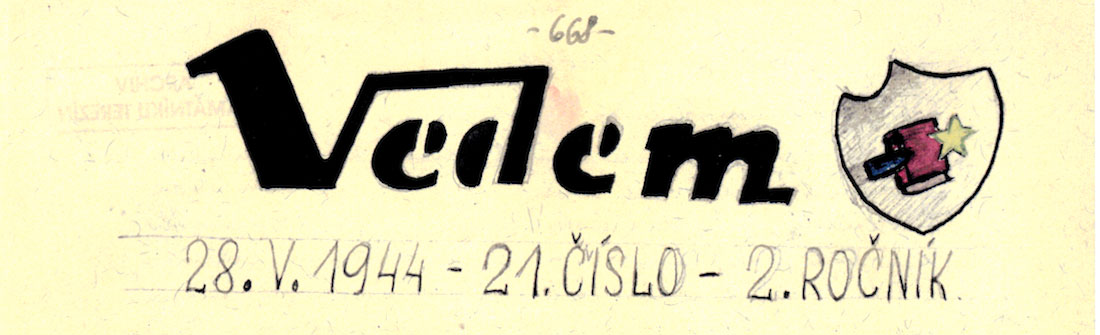 -668-
Vedem
ARCHIV
PAMÁTNÍKU TEREZÍN
28.V.1944 - 21.ČÍSLO - 2.ROČNÍK